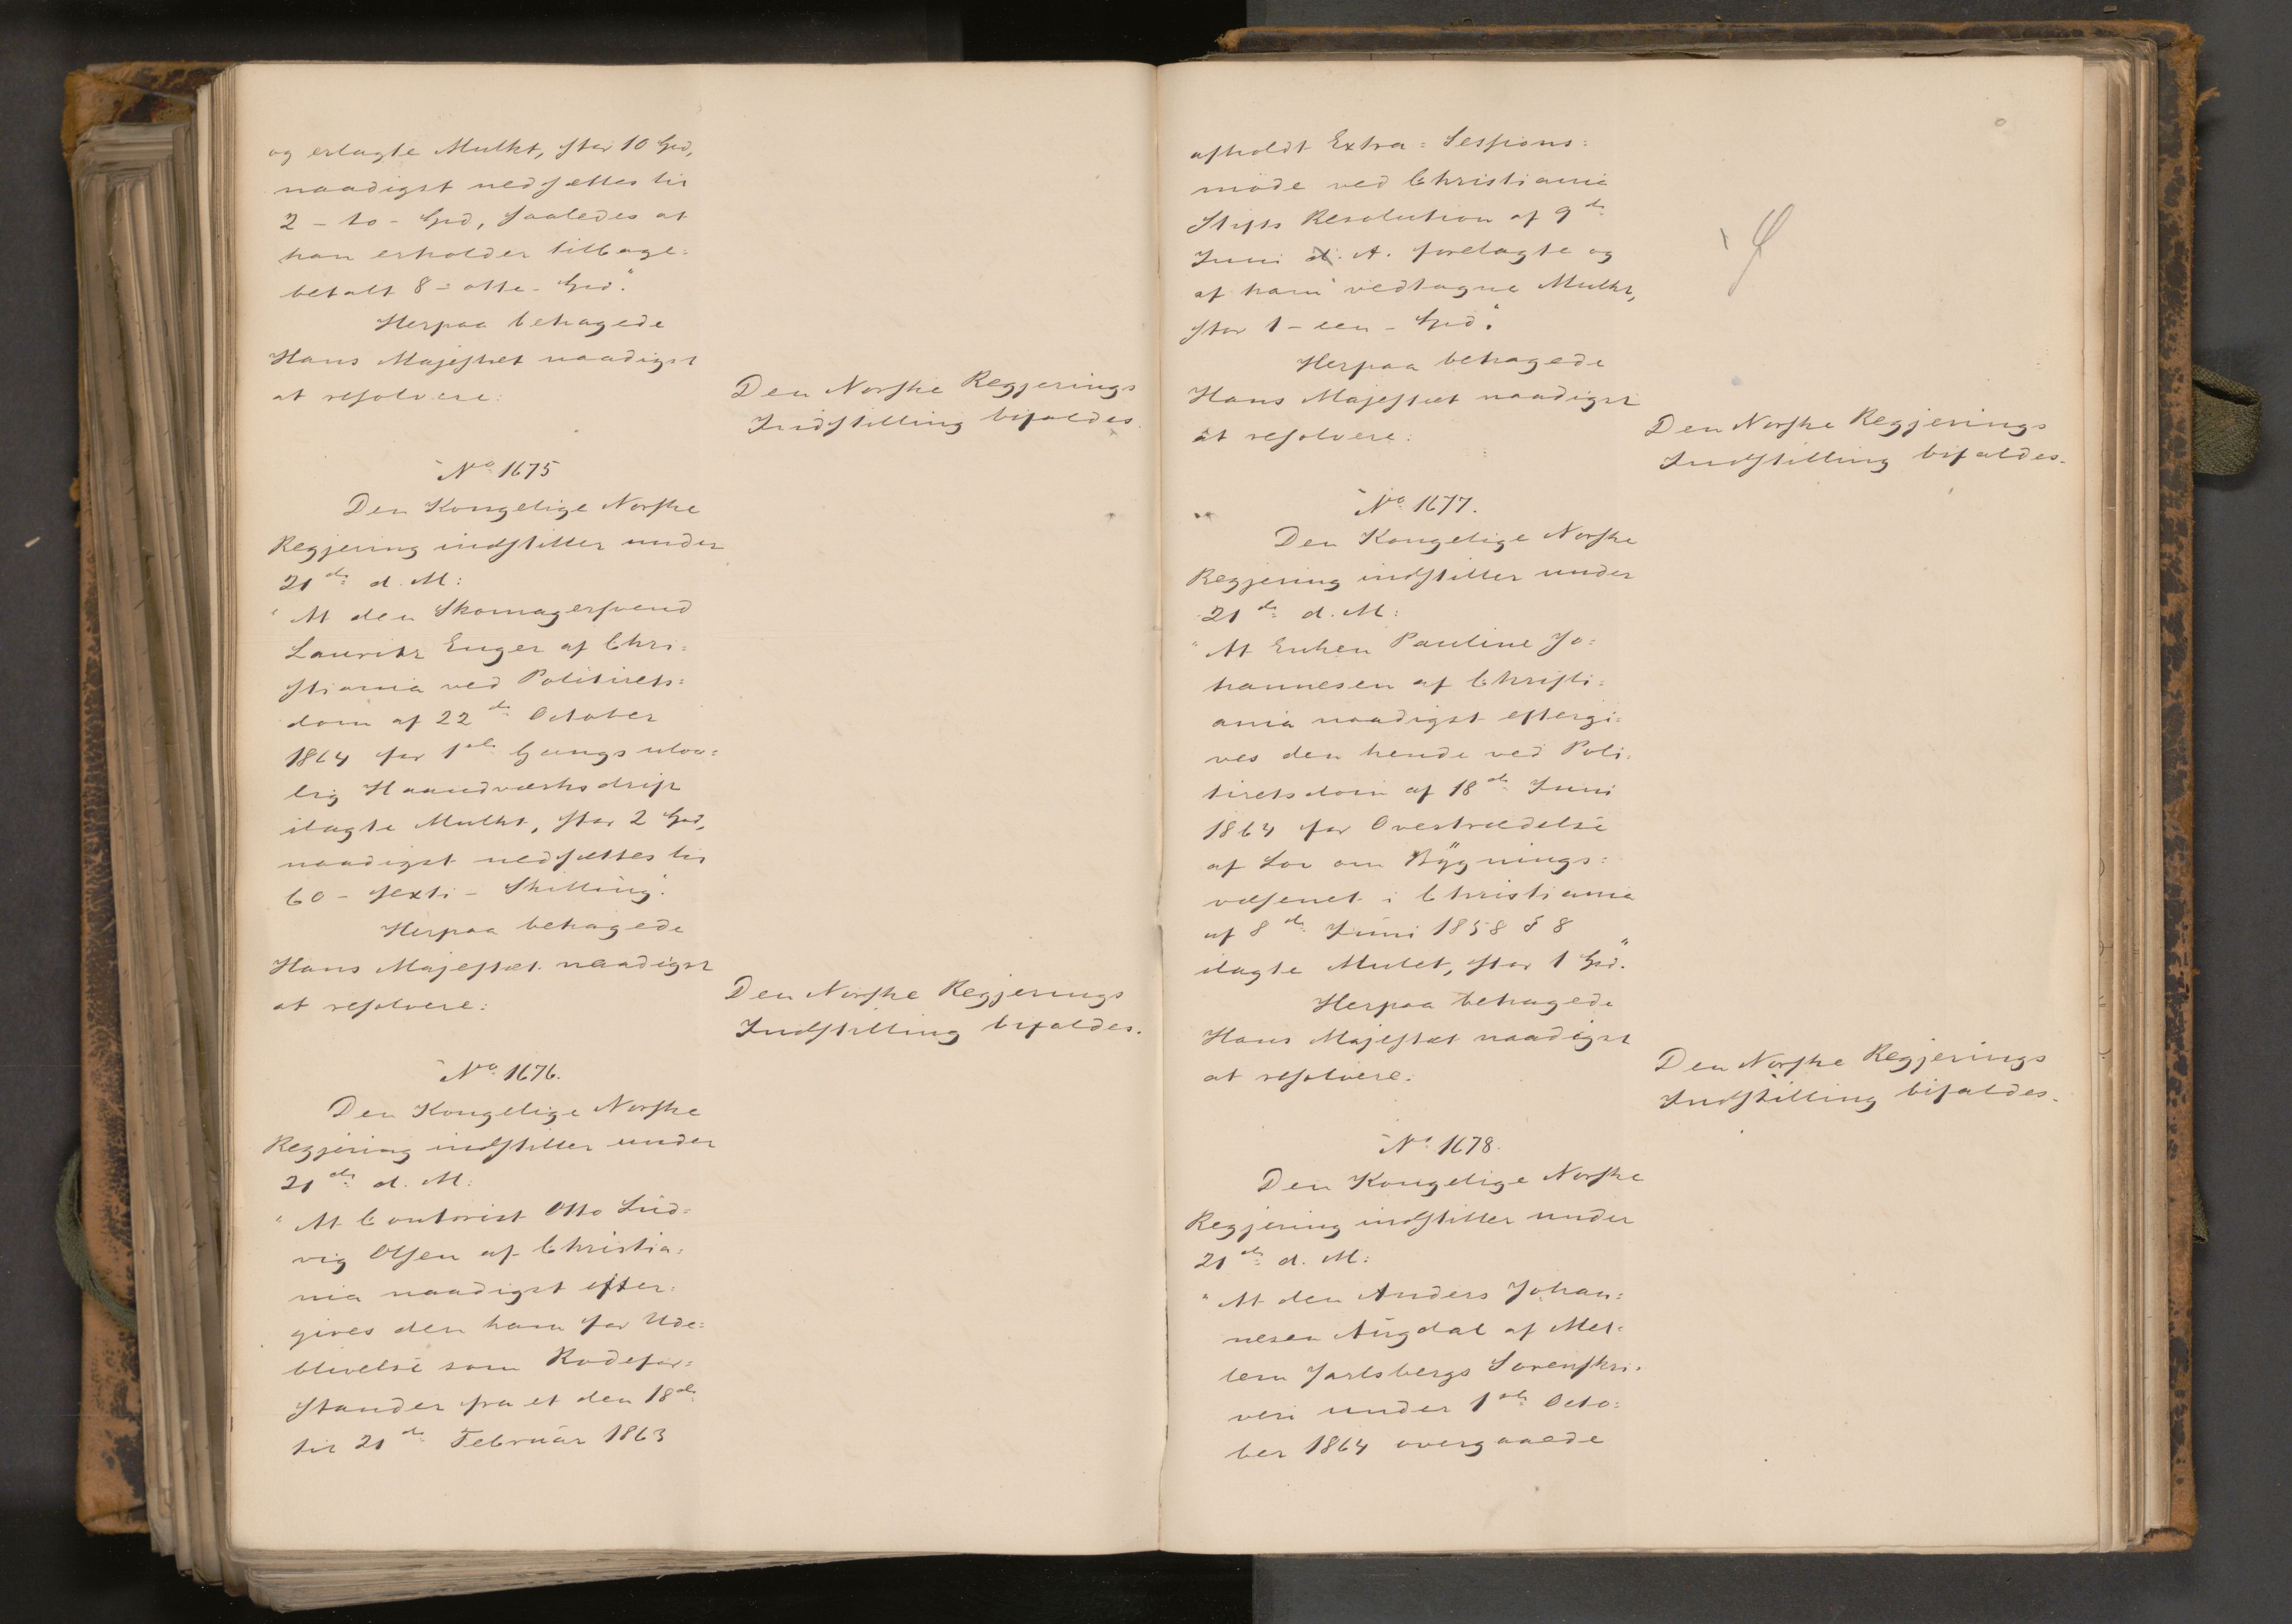 og erlagte Mulkt, stor 10 Spd,
naadigst nedsættes til
2 - to - Spd, saaledes at
han erholder tilbage=
betalt 8 - otte - Spd."
Herpaa behagede
Hans Majestæt naadigst
at resolvere:
Den Norske Regjerings
Indstilling bifaldes.
No 1675
Den Kongelige Norske
Regjering indstiller under
21de d. M:
"At den Skomagersvend
Lauritz Enger af Chri=
stiania ved Politirets=
dom af 22de October
1864 for 1ste Gangs ulov=
lig Haandværksdrift
ilagte Mulkt, stor 2 Spd,
naadigst nedsættes til
60 - sexti - Skilling."
Herpaa behagede
Hans Majestæt naadigst
at resolvere:
Den Norske Regjerings
Indstilling bifaldes.
No 1676.
Den Kongelige Norske
Regjering indstiller under
21de d. M:
"At Contorist Otto Lud=
vig Olsen af Christia=
nia naadigst efter=
gives den ham for Ude=
blivelse som Rodefor=
stander fra et den 18de
til 21de Februar 1863
afholdt Extra=Sessions=
möde ved Christiania
Stifts Resolution af 9de
Juni d. A. forelagte og
af ham vedtagne Mulkt,
stor 1 - een - Spd."
Herpaa behagede
Hans Majestæt naadigst
at resolvere:
Den Norske Regjerings
Indstilling bifaldes.
No 1677.
Den Kongelige Norske
Regjering indstiller under
21de d. M:
"At Enken Pauline Jo=
hannesen af Christi=
ania naadigst eftergi=
ves den hende ved Poli=
tiretsdom af 18de Juni
1864 for Overtrædelse
af Lov om Bygnings=
væsenet i Christiania
af 8de Juni 1858 § 8
ilagte Mulct, stor 1 Spd."
Herpaa behagede
Hans Majestæt naadigst
at resolvere:
Den Norske Regjerings
Indstilling bifaldes.
No 1678.
Den Kongelige Norske
Regjering indstiller under
21de d. M:
"At den Anders Johan=
nesen Augdal af Mel=
lem Jarlsbergs Sorenskri=
veri under 1ste Octo=
ber 1864 overgaaede